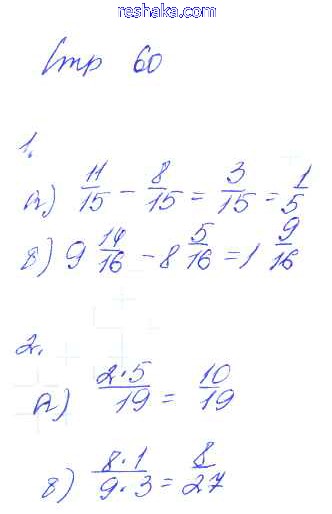 reshaka.com
Стр 60
1.
а) 11/15 - 8/15 = 3/15 = 1/5
в) 9 14/16 - 8 5/16 = 1 9/16
2.
а) 2·5/19 = 10/19
в) 8·1/9·3 = 8/27